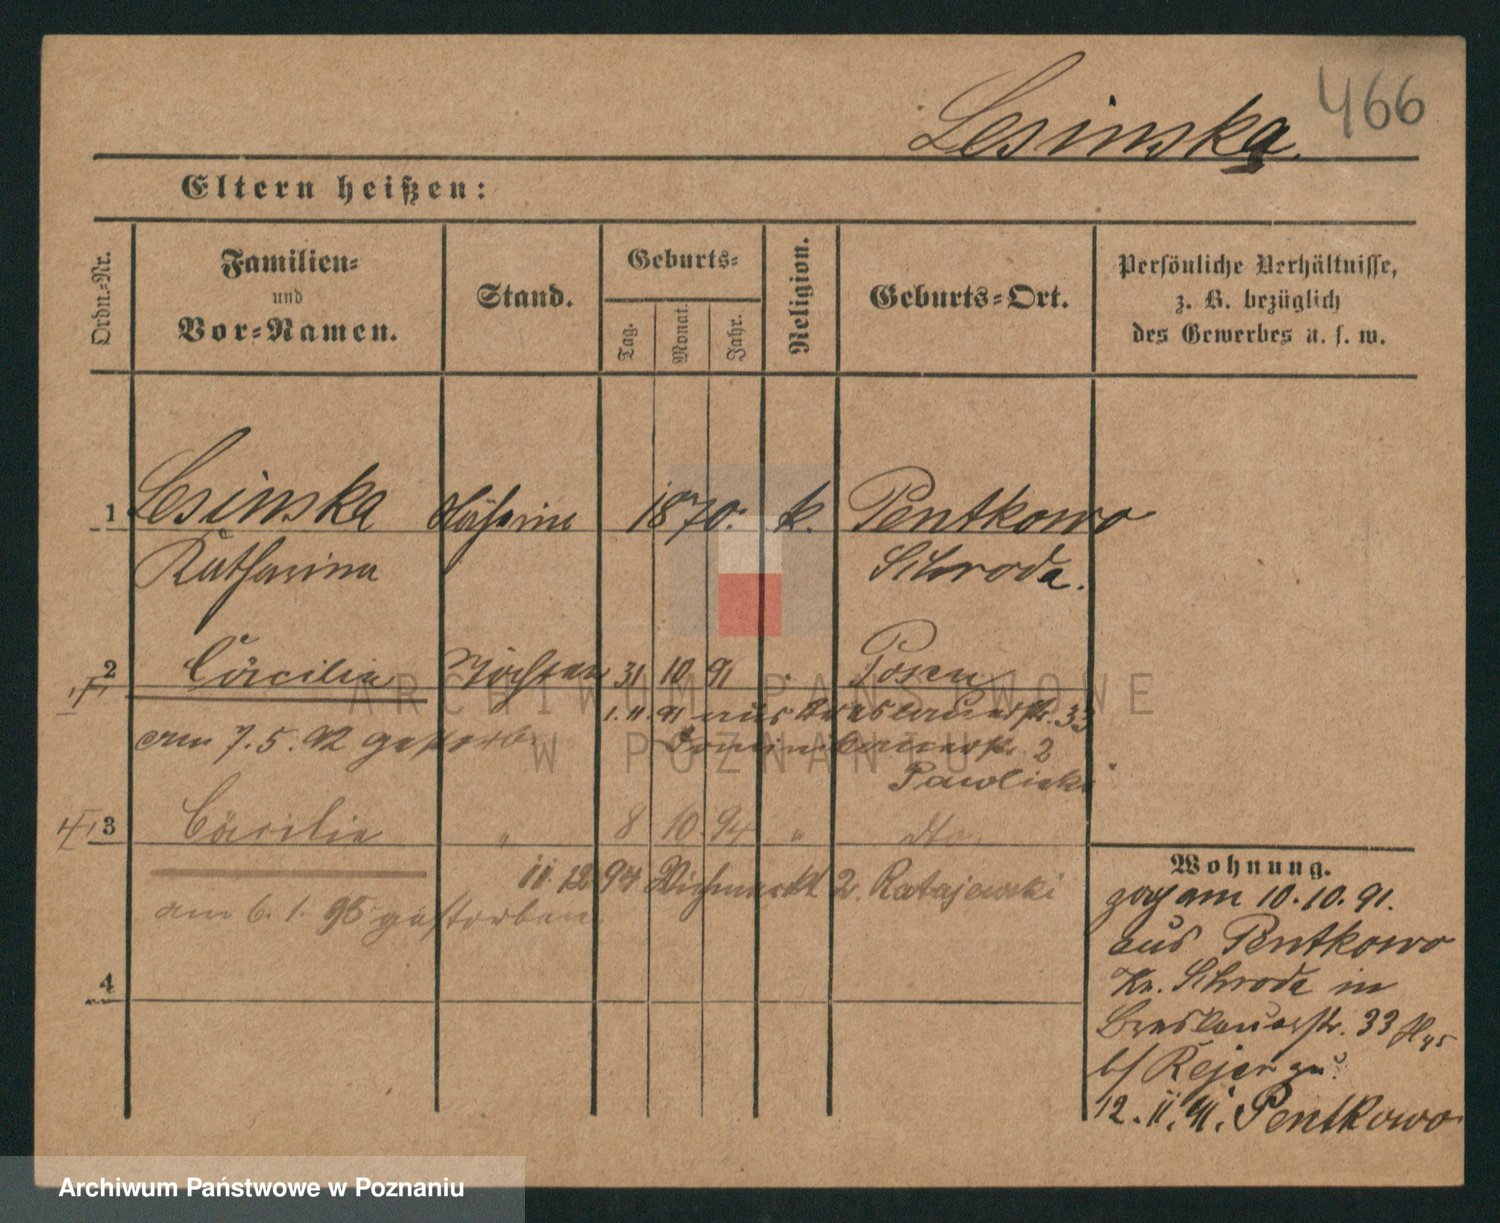 Lesinska.
466
Eltern heißen:
Ordn.-Nr.
Familien-
und
Vor-Namen.
Stand.
Geburts-
Tag.
Monat.
Jahr.
Religion.
Geburts-Ort.
Persönliche Verhältnisse,
z. B. bezüglich
des Gewerbes u. s. w.
1 Lesinska Näherin 1870. k. Pentkowo
Katharina Schroda.
2 Cäcilia Tochter 31 10 91 Posen
1.11.91 aus Breslauerstr. 33
am 7.5.92 gestorb. Dominikanerstr. 2
Pawlicki
3 Cäcilia " 8 10. 94 " do.
11.12.94 Viehmarkt 2. Ratajewski
am 6. 1. 95 gestorben.
4
Wohnung.
zog am 10.10.91.
aus Pentkowo
Kr. Schroda in
Breslauerstr. 33
b/ Rejer zu.
12.11.91. Pentkowo
ARCHIWUM PAŃSTWOWE
W POZNANIU
Archiwum Państwowe w Poznaniu